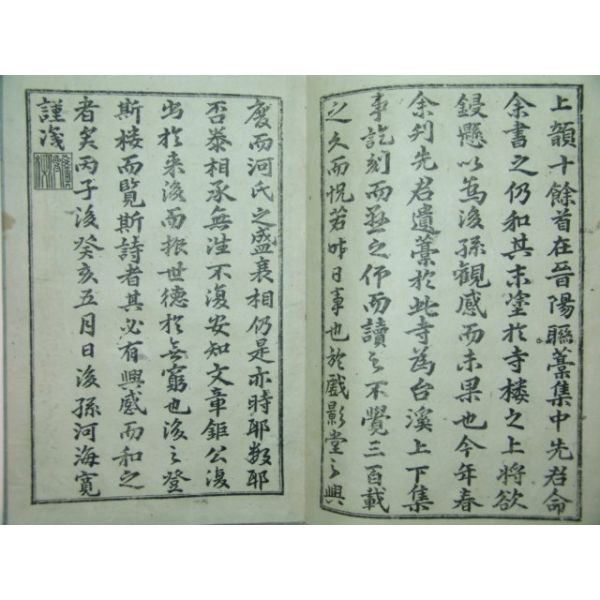 上韻十餘首在晉陽聯藁集中先君命
余書之仍和其末塗於寺樓之上將欲
鋟懸以爲後孫觀感而未果也今年春
余刋先君遺藁於此寺爲台溪上下集
事訖刻而懸之仰而讀之不覺三百載
之久而怳若昨日事也於戲影堂之興
廢而河氏之盛衰相仍是亦時耶數耶
否泰相承無往不復安知文章鉅公復
出於來後而振世德於無窮也後之登
斯樓而覽斯詩者其必有興感而和之
者矣丙子後癸亥五月日後孫河海寬
謹淺